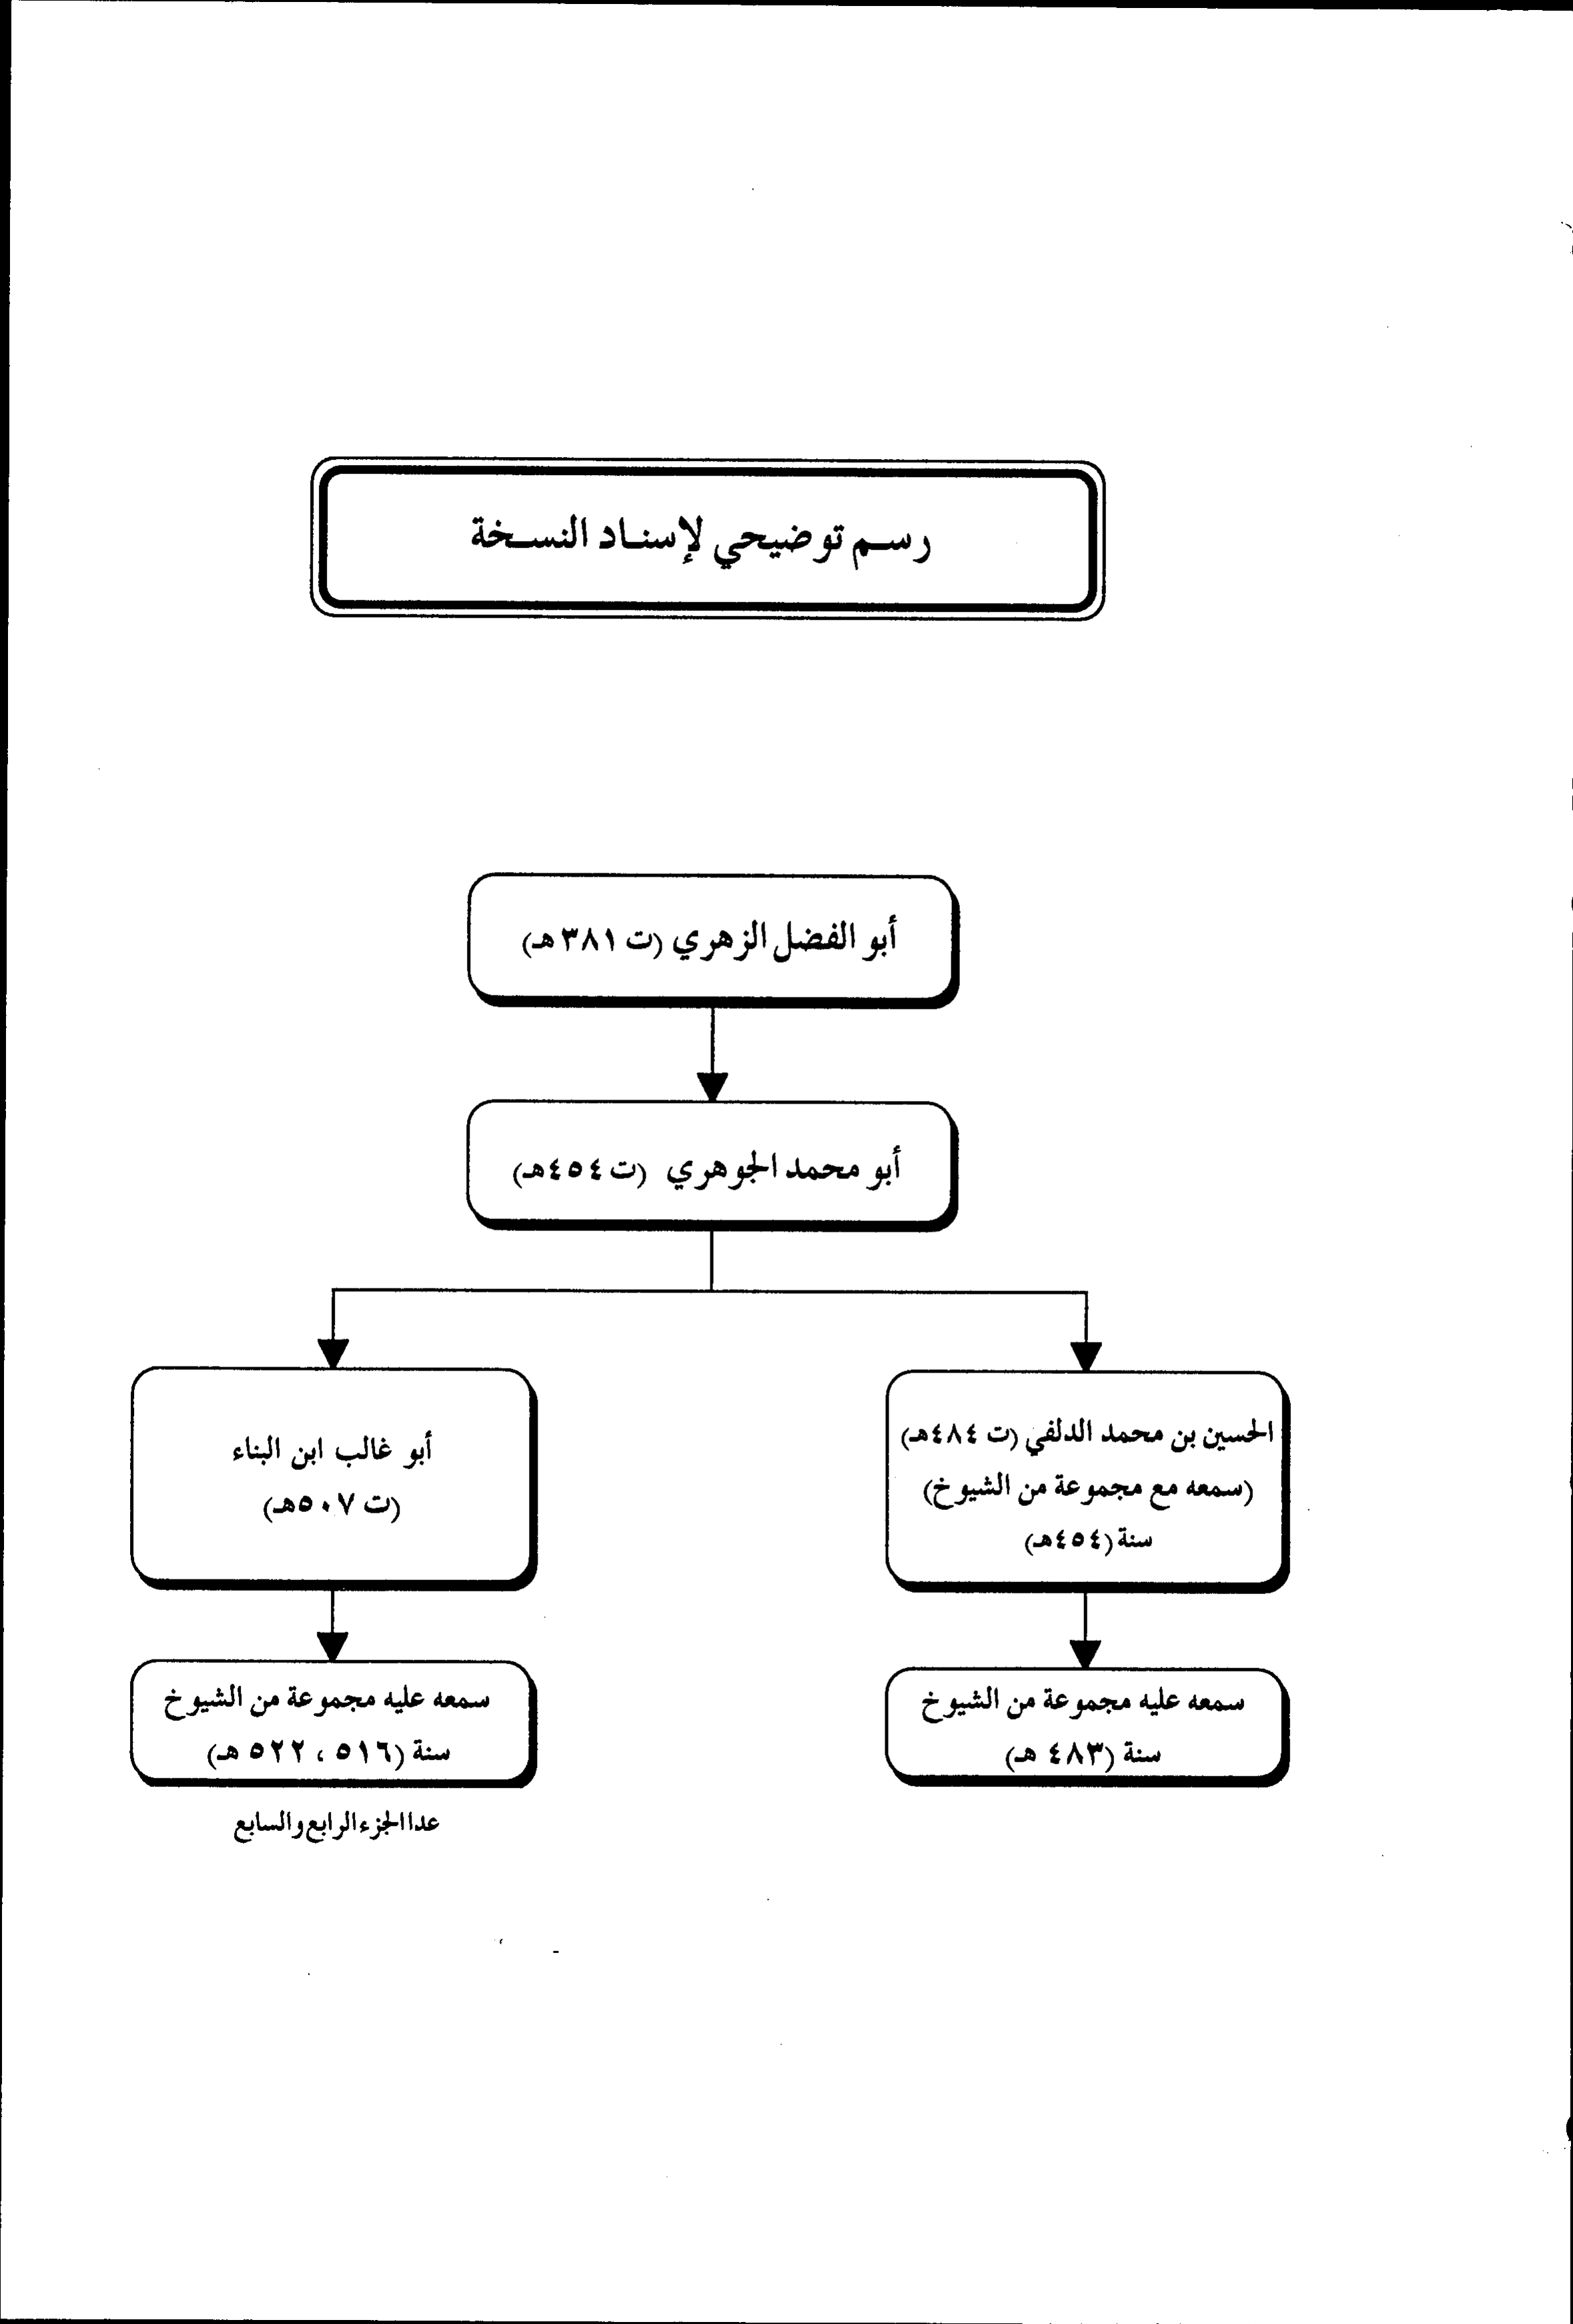 رسم توضيحي لإسناد النسخة
أبو الفضل الزهري (ت ٣٨١هـ)
أبو محمد الجوهري (ت ٤٥٤هـ)
الحسين بن محمد الدلفي (ت ٤٨٤هـ)
(سمعه مع مجموعة من الشيوخ)
سنة (٤٥٤هـ)
أبو غالب ابن البناء
(ت ٥٠٧هـ)
سمعه عليه مجموعة من الشيوخ
سنة (٤٨٣ هـ)
سمعه عليه مجموعة من الشيوخ
سنة (٥١٦ ، ٥٢٢ هـ)
عدا الجزء الرابع والسابع